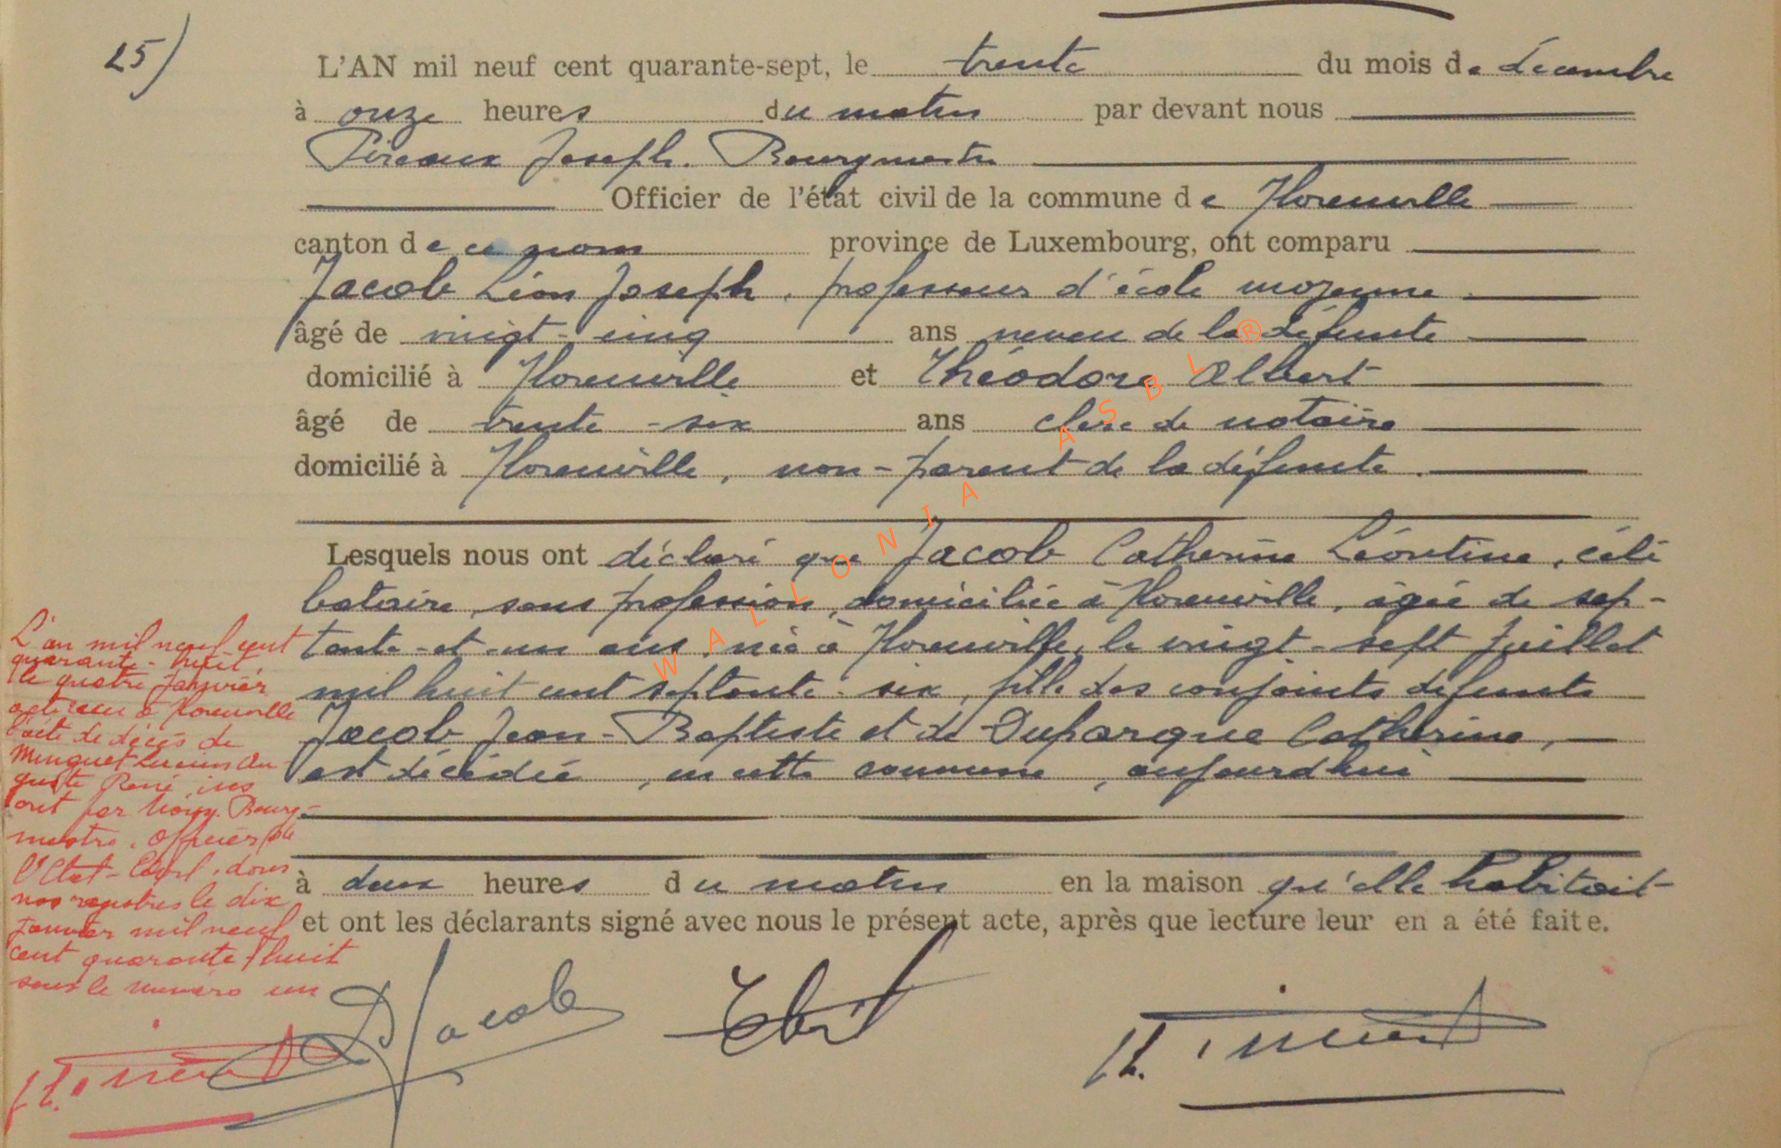 25)
L'AN mil neuf cent quarante-sept, le trente du mois de décembre
à onze heures du matin par devant nous
Pireaux Joseph. Bourgmestre
Officier de l'état civil de la commune de Florenville
canton de ce nom province de Luxembourg, ont comparu
Jacob Léon Joseph, professeur d'école moyenne
âgé de vingt-cinq ans neveu de la défunte
domicilié à Florenville et Théodore Albert
âgé de trente-six ans clerc de notaire
domicilié à Florenville, non-parent de la défunte.
Lesquels nous ont déclaré que Jacob Catherine Léontine, céli
bataire, sans profession, domiciliée à Florenville, âgée de sep-
tante-et-un ans, née à Florenville, le vingt-sept Juillet
mil huit cent septante-six, fille des conjoints défunts
Jacob Jean-Baptiste et de Duparque Catherine,
est décédée, en cette commune, aujourd'hui
à deux heures du matin en la maison qu'elle habitait
et ont les déclarants signé avec nous le présent acte, après que lecture leur en a été faite.
L'an mil neuf cent
quarante-huit,
le quatre Janvier
acte reçu à Florenville
l'acte de décès de
Minguet Lucien Au
guste René, ins
crit par Nous, Bourg-
mestre, Officier de
l'Etat-Civil, dans
nos registres le dix
Janvier mil neuf
cent quarante-huit
sous le numéro un
Jacob
WALLONIA ASBL ®